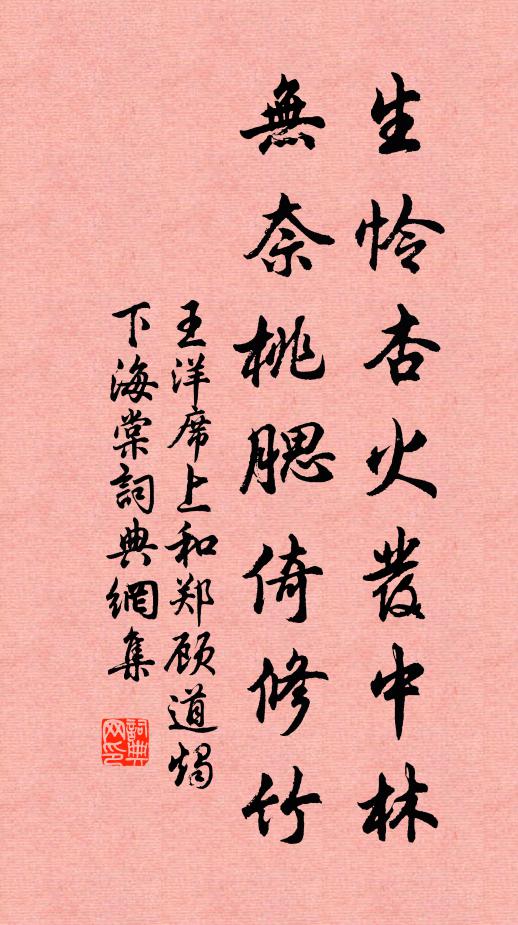 生怜杏火發中林
無奈桃腮倚修竹
王洋席上和郑顾道燭
下海棠詞典網集
詞典网印